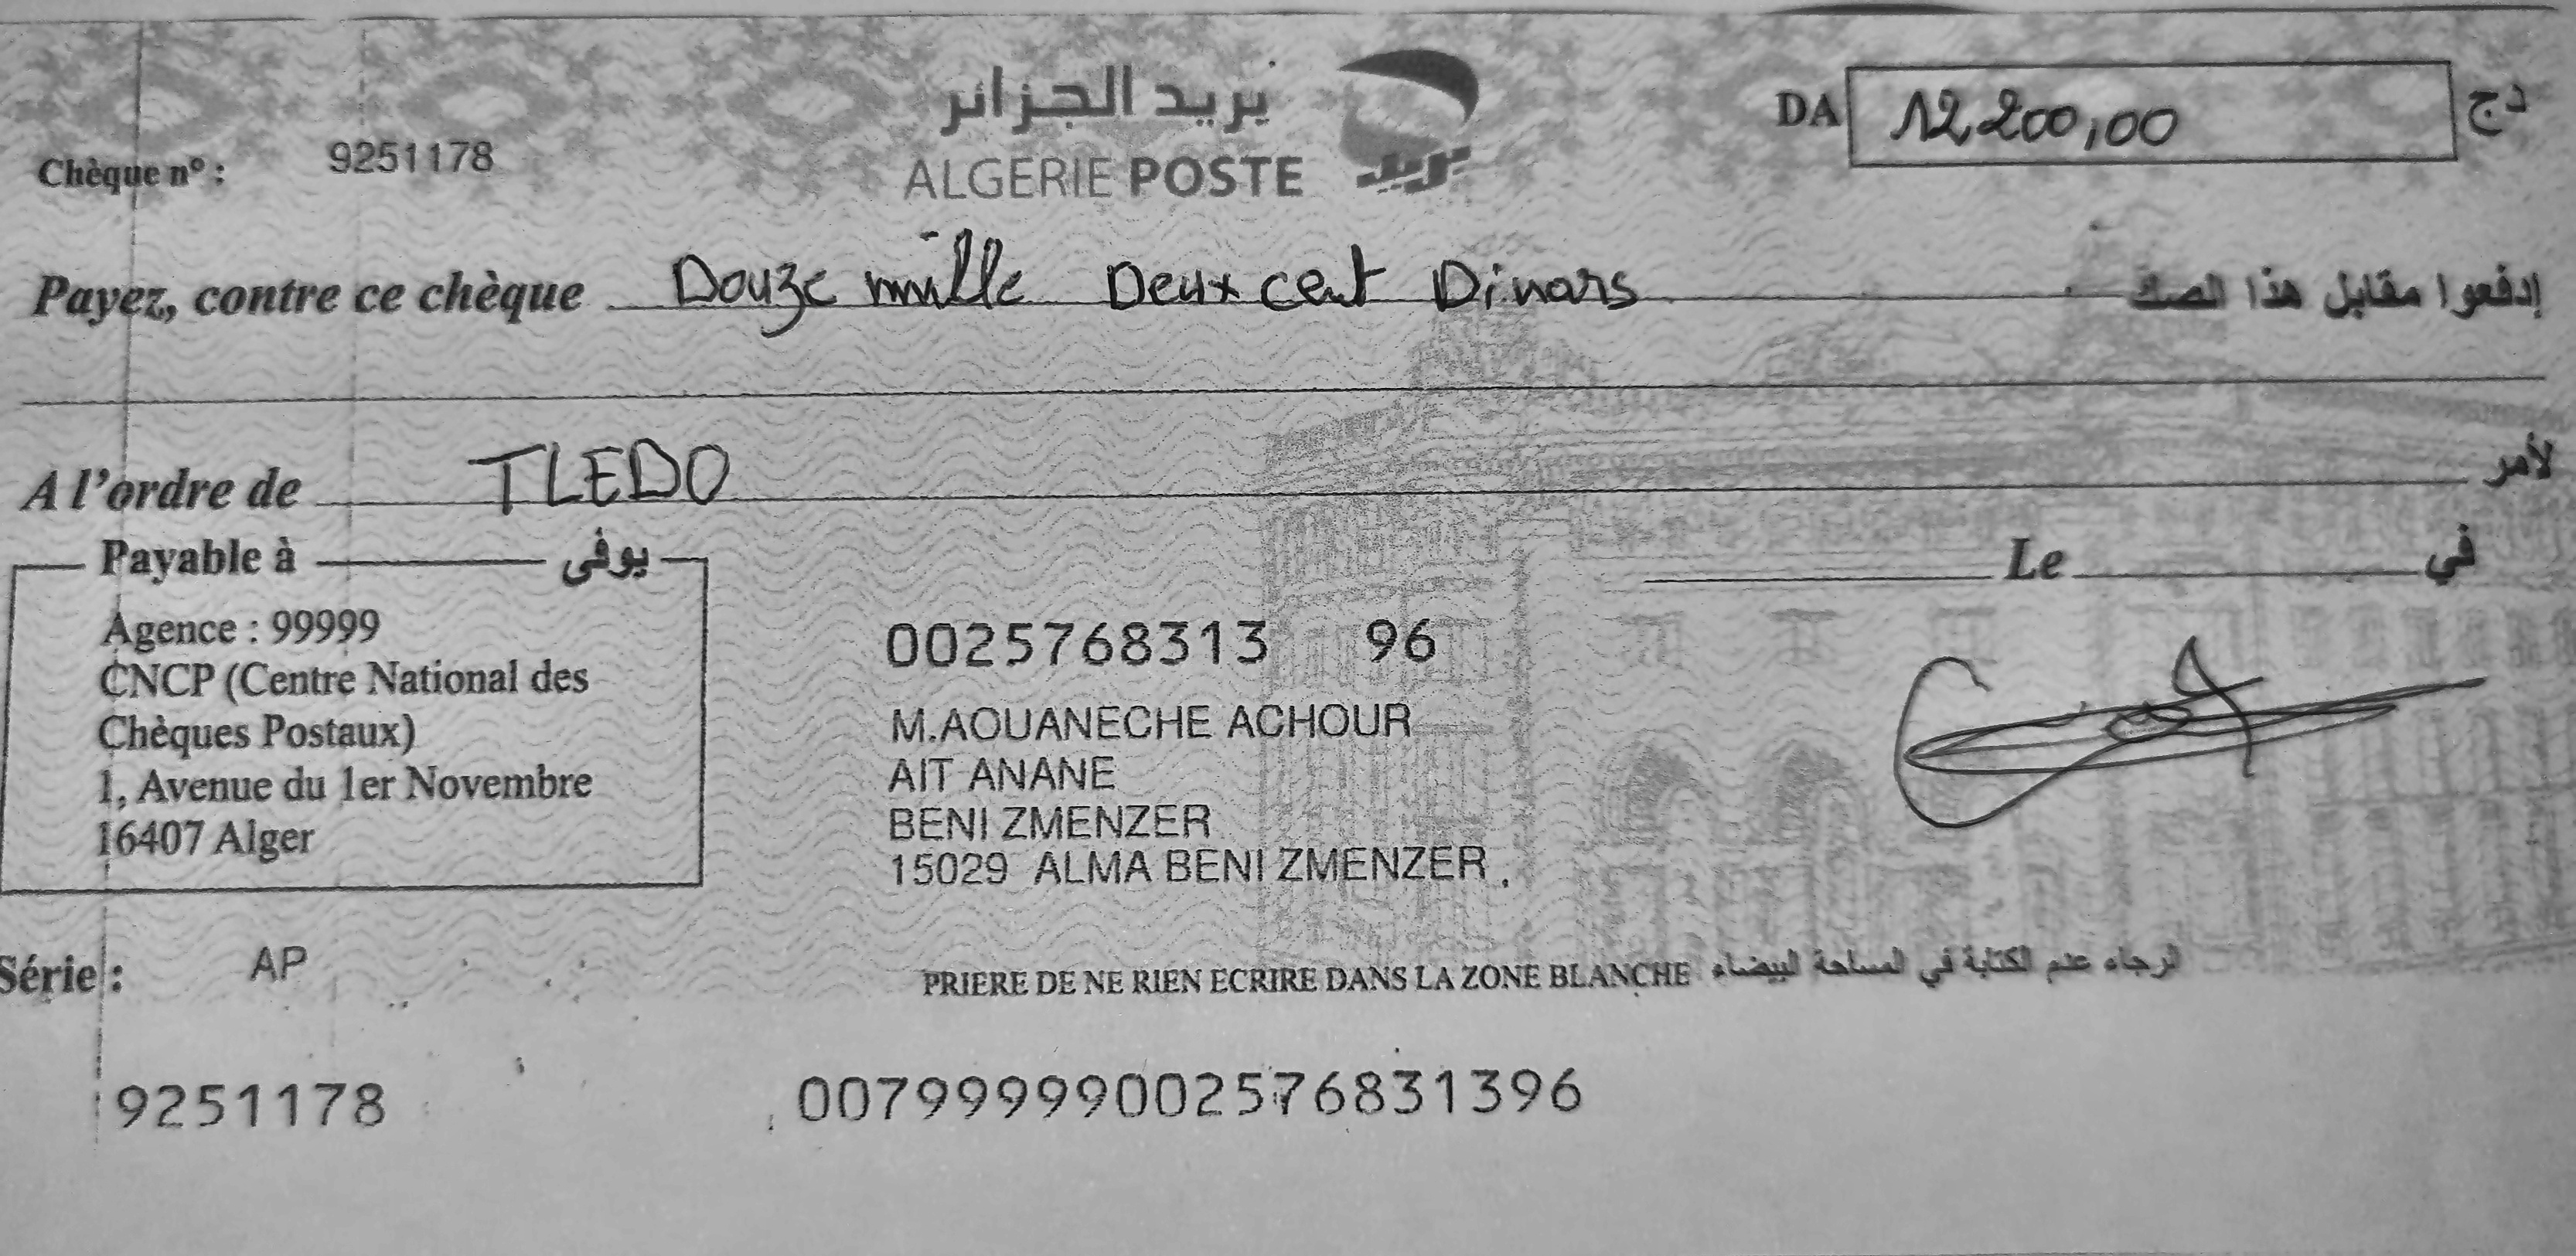 بريد الجزائر
ALGERIE POSTE
بريد
DA 12.200,00 دج
Chèque n° : 9251178
Payez, contre ce chèque Douze mille Deux cent Dinars إدفعوا مقابل هذا الصك
A l'ordre de TLEDO لأمر
Payable à يوفى
Agence : 99999
CNCP (Centre National des
Chèques Postaux)
1, Avenue du 1er Novembre
16407 Alger
Le في
0025768313 96
M.AOUANECHE ACHOUR
AIT ANANE
BENI ZMENZER
15029 ALMA BENI ZMENZER
Série : AP
PRIERE DE NE RIEN ECRIRE DANS LA ZONE BLANCHE الرجاء عدم الكتابة في المساحة البيضاء
9251178 00799999002576831396